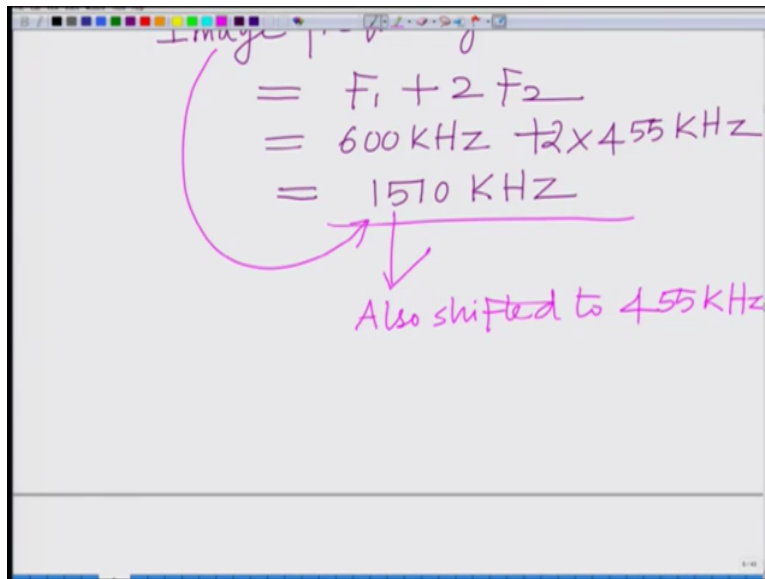 Image
= F₁ + 2 F₂
= 600 KHz + 2 × 455 KHz
= 1510 KHZ
Also shifted to 455 KHz